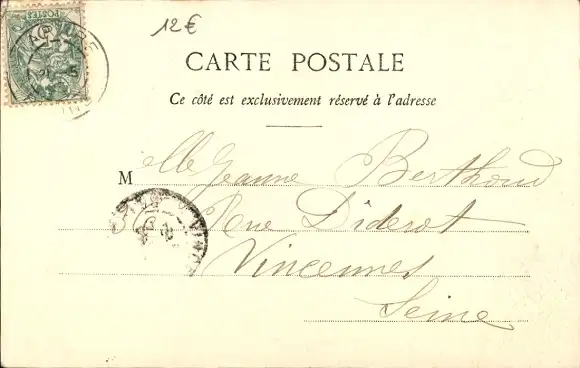 12 €
POSTES
CARTE POSTALE
Ce côté est exclusivement réservé à l'adresse
Melle Jeanne Berthoud
Rue Diderot
Vincennes
Seine